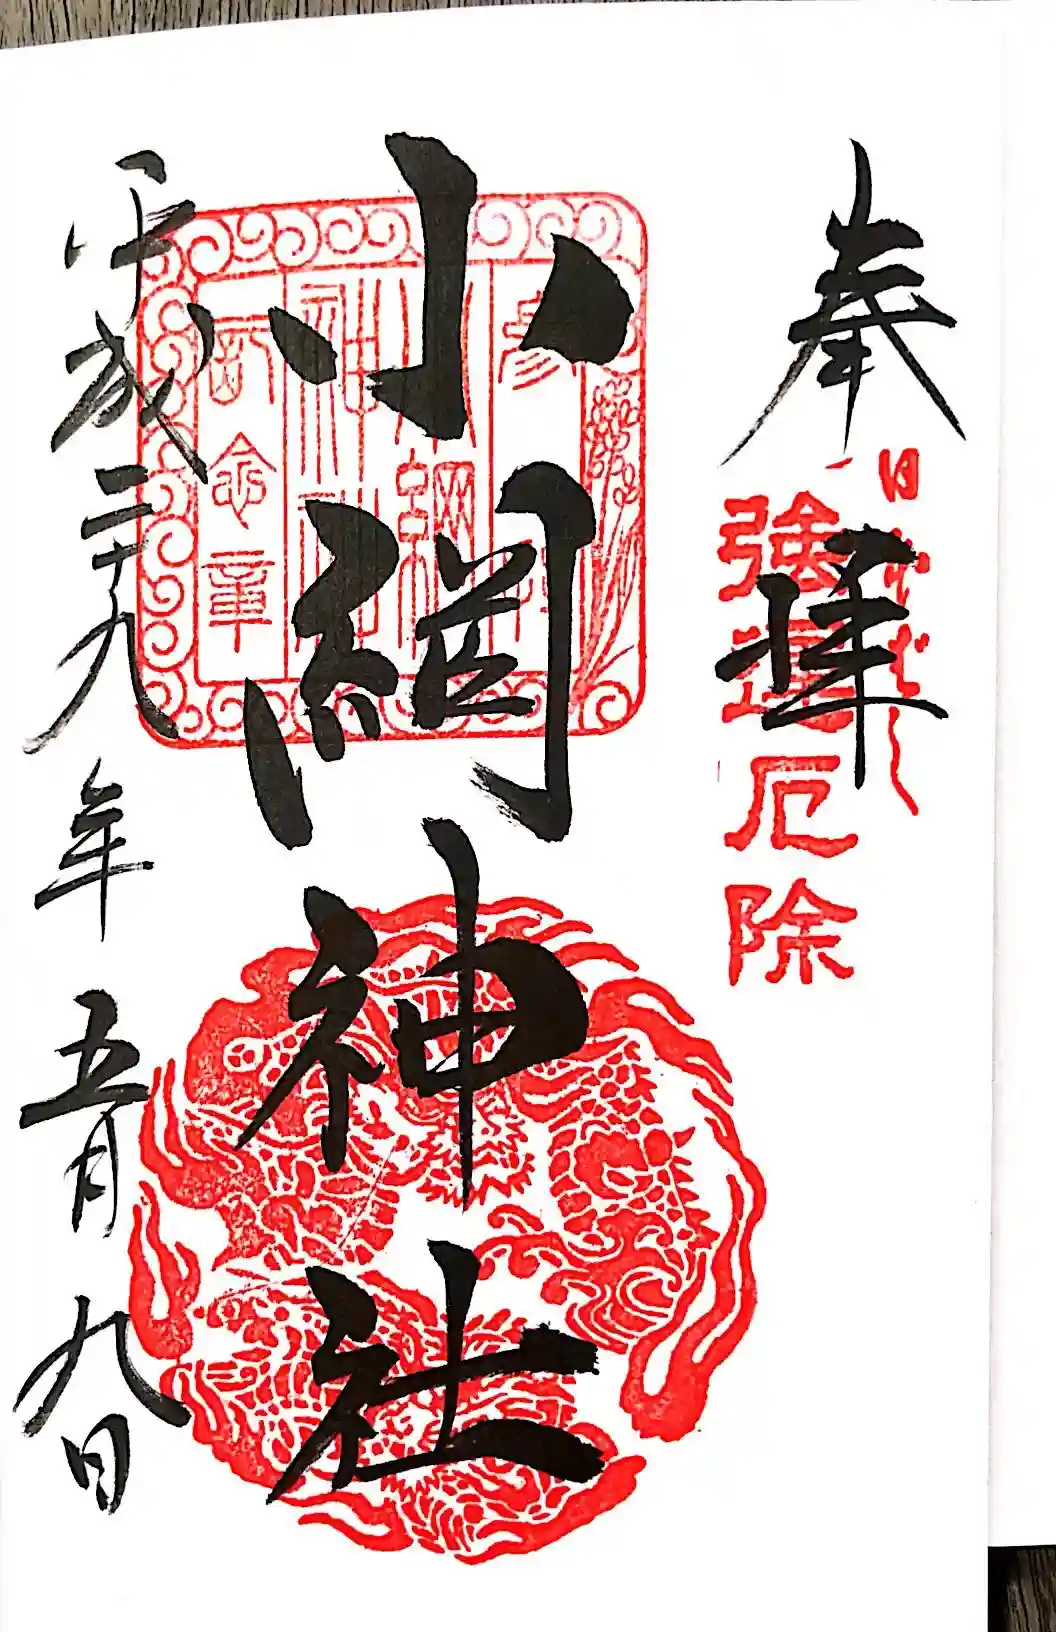 奉拝
強運厄除
小網神社
参拝
小網
神社
記念章
平成二十九年五月九日